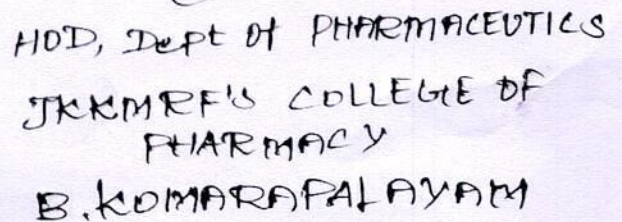 HOD, Dept of PHARMACEUTICS
JKKMRF'S COLLEGE OF
PHARMACY
B. KOMARAPALAYAM